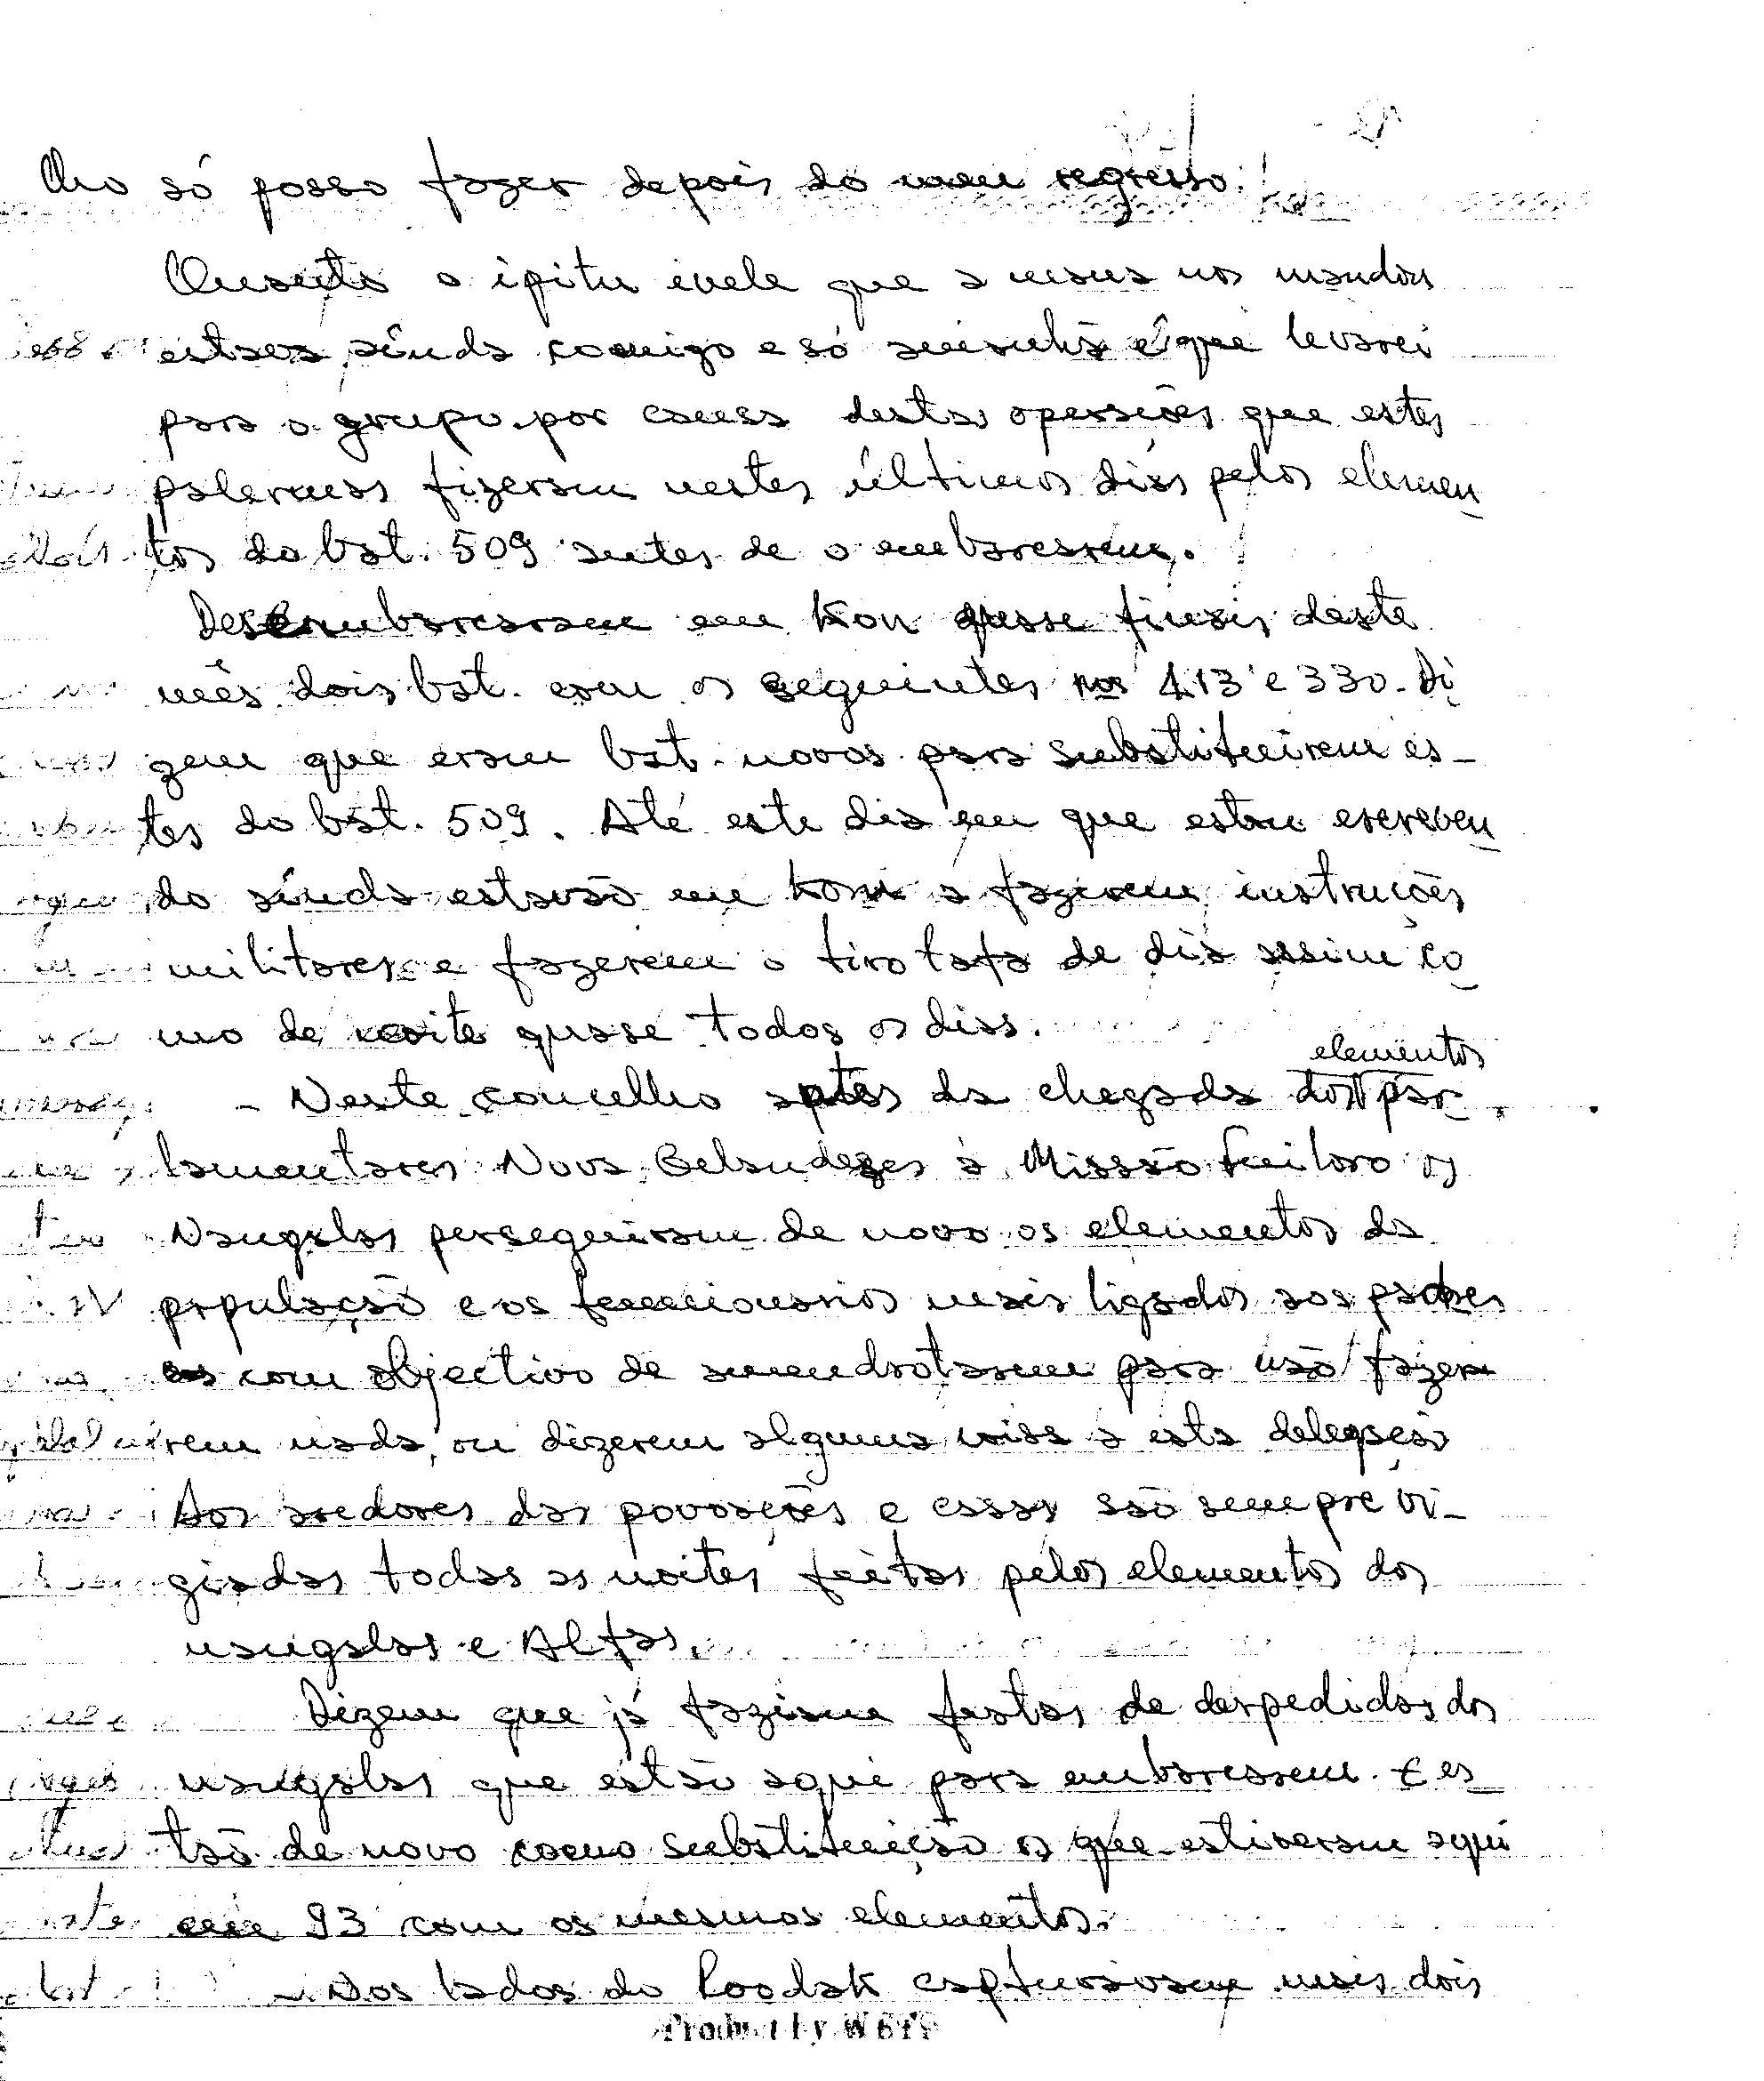 lho só posso fazer depois do meu regresso.
Quanto o ipitu evele que a mana nos mandou
estava ainda comigo e só amanhã é que levarei
para o grupo por causa destas operasões que estes
palermas fizeram nestes últimos dias pelos elemen
tos do bat. 509 antes de o embaressem.
Desembarcaram em Kon quase finais deste
mês dois bat. com os seguintes nos 413 e 330. Di
zem que eram bat. novos para substituirem es-
tes do bat. 509. Até este dia em que estou escreven
do ainda estavão em Kom a fazerem instruções
militares e fazerem o tiro tafa de dia assim co
mo de noite quase todos os dias.
- Neste concelho antes da chegada dos elementos par
lamentares Nova Gelandezes à Missão Fuiloro os
Nangalas perseguiram de novo os elementos da
população e os funcionarios mais ligados aos padres
com objectivo de amendrotarem para não fazem
rem nada, ou dizerem alguma coisa a esta delegação
Aos aredores das povoações e essas são sempre vi-
giadas todas as noites feitas pelos elementos dos
nangalas e Alfas.
Dizem que já faziam festas de despedidas dos
nangalas que estão aqui para embaressem. E es-
tão de novo como substituição os que estiveram aqui
em 93 com os mesmos elementos.
- Aos lados do Loodak capturavam mais dois